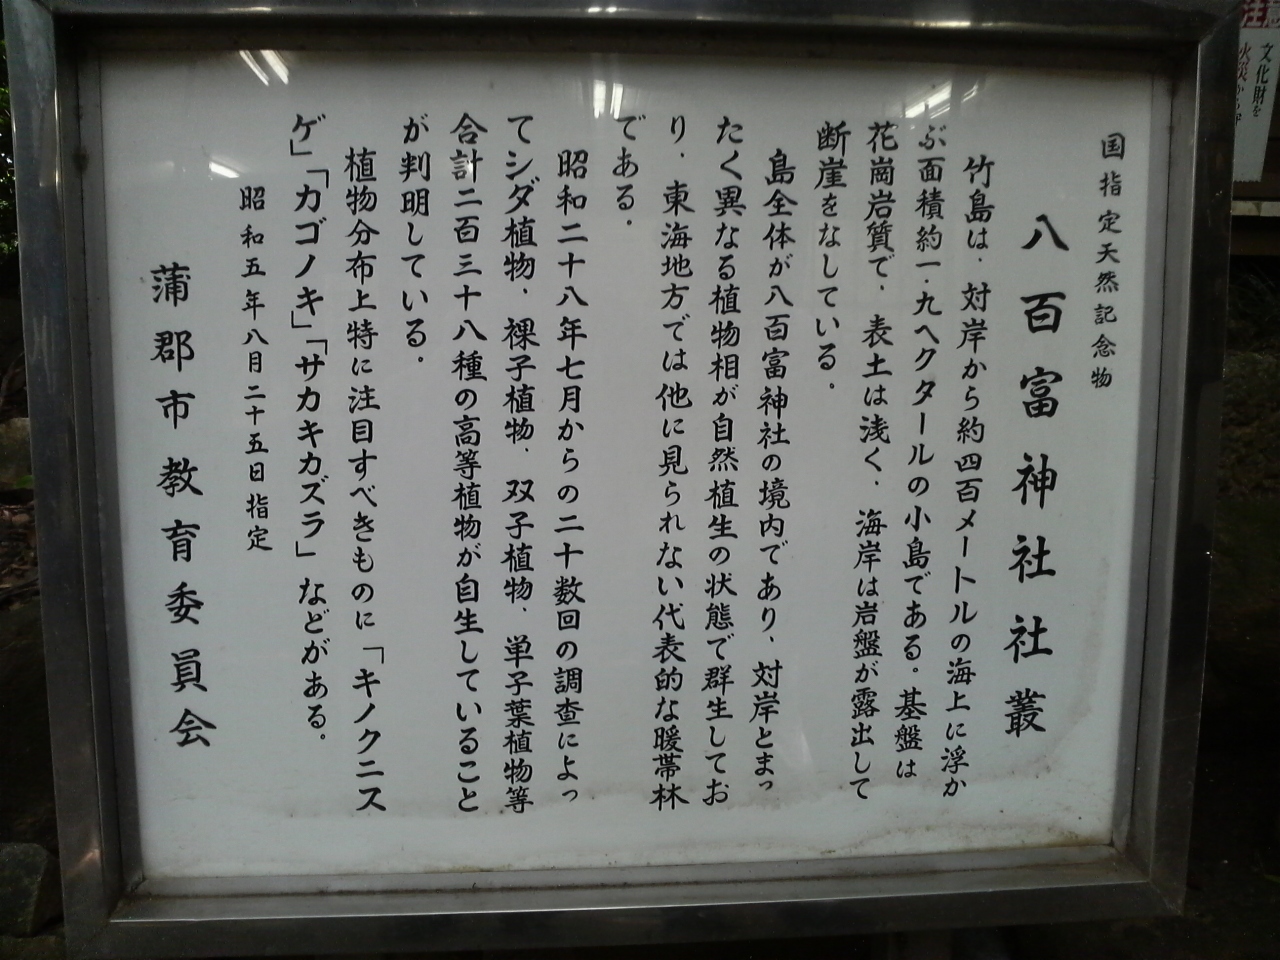 国指定天然記念物
八百富神社社叢
竹島は、対岸から約四百メートルの海上に浮か
ぶ面積約一・九ヘクタールの小島である。基盤は
花崗岩質で、表土は浅く、海岸は岩盤が露出して
断崖をなしている。
島全体が八百富神社の境内であり、対岸とまっ
たく異なる植物相が自然植生の状態で群生してお
り、東海地方では他に見られない代表的な暖帯林
である。
昭和二十八年七月からの二十数回の調査によっ
てシダ植物、裸子植物、双子植物、単子葉植物等
合計二百三十八種の高等植物が自生していること
が判明している。
植物分布上特に注目すべきものに「キノクニス
ゲ」「カゴノキ」「サカキカズラ」などがある。
昭和五年八月二十五日指定
蒲郡市教育委員会
注意
文化財を